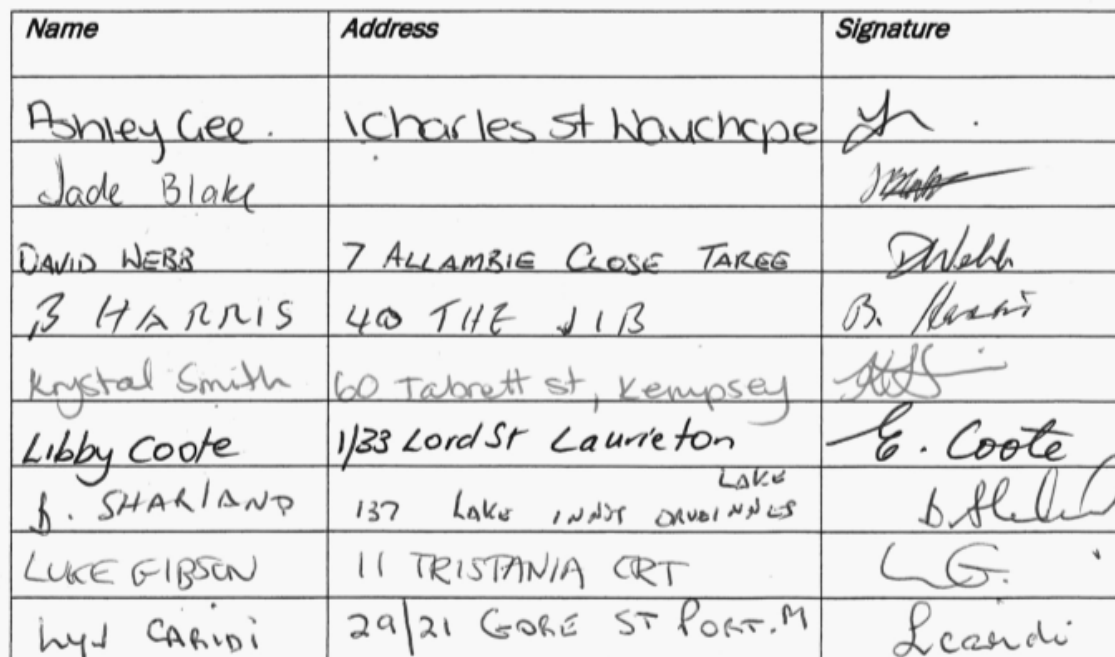 Name Address Signature
Ashley Gee. 1 Charles St Wauchope
Jade Blake
DAVID WEBB 7 ALLAMBIE CLOSE TAREE DWebb
B HARRIS 40 THE JIB B. Harris
Krystal Smith 60 Tabrett st, Kempsey
Libby Coote 1/33 Lord St Laurieton E. Coote
LAKE
D. SHARLAND 137 LAKE INNES INNES
LUKE GIBSON 11 TRISTANIA CRT L G.
CARIDI 29/21 GORE ST PORT. M Lcaridi